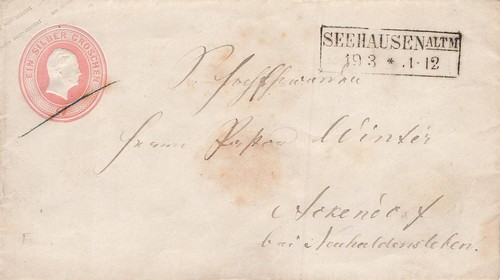 EIN SILBER GROSCHEN
SEEHAUSEN ALTM
19 3 * .1-12
Herrn Pastor Winter
Ackendorf
bei Neuhaldensleben.